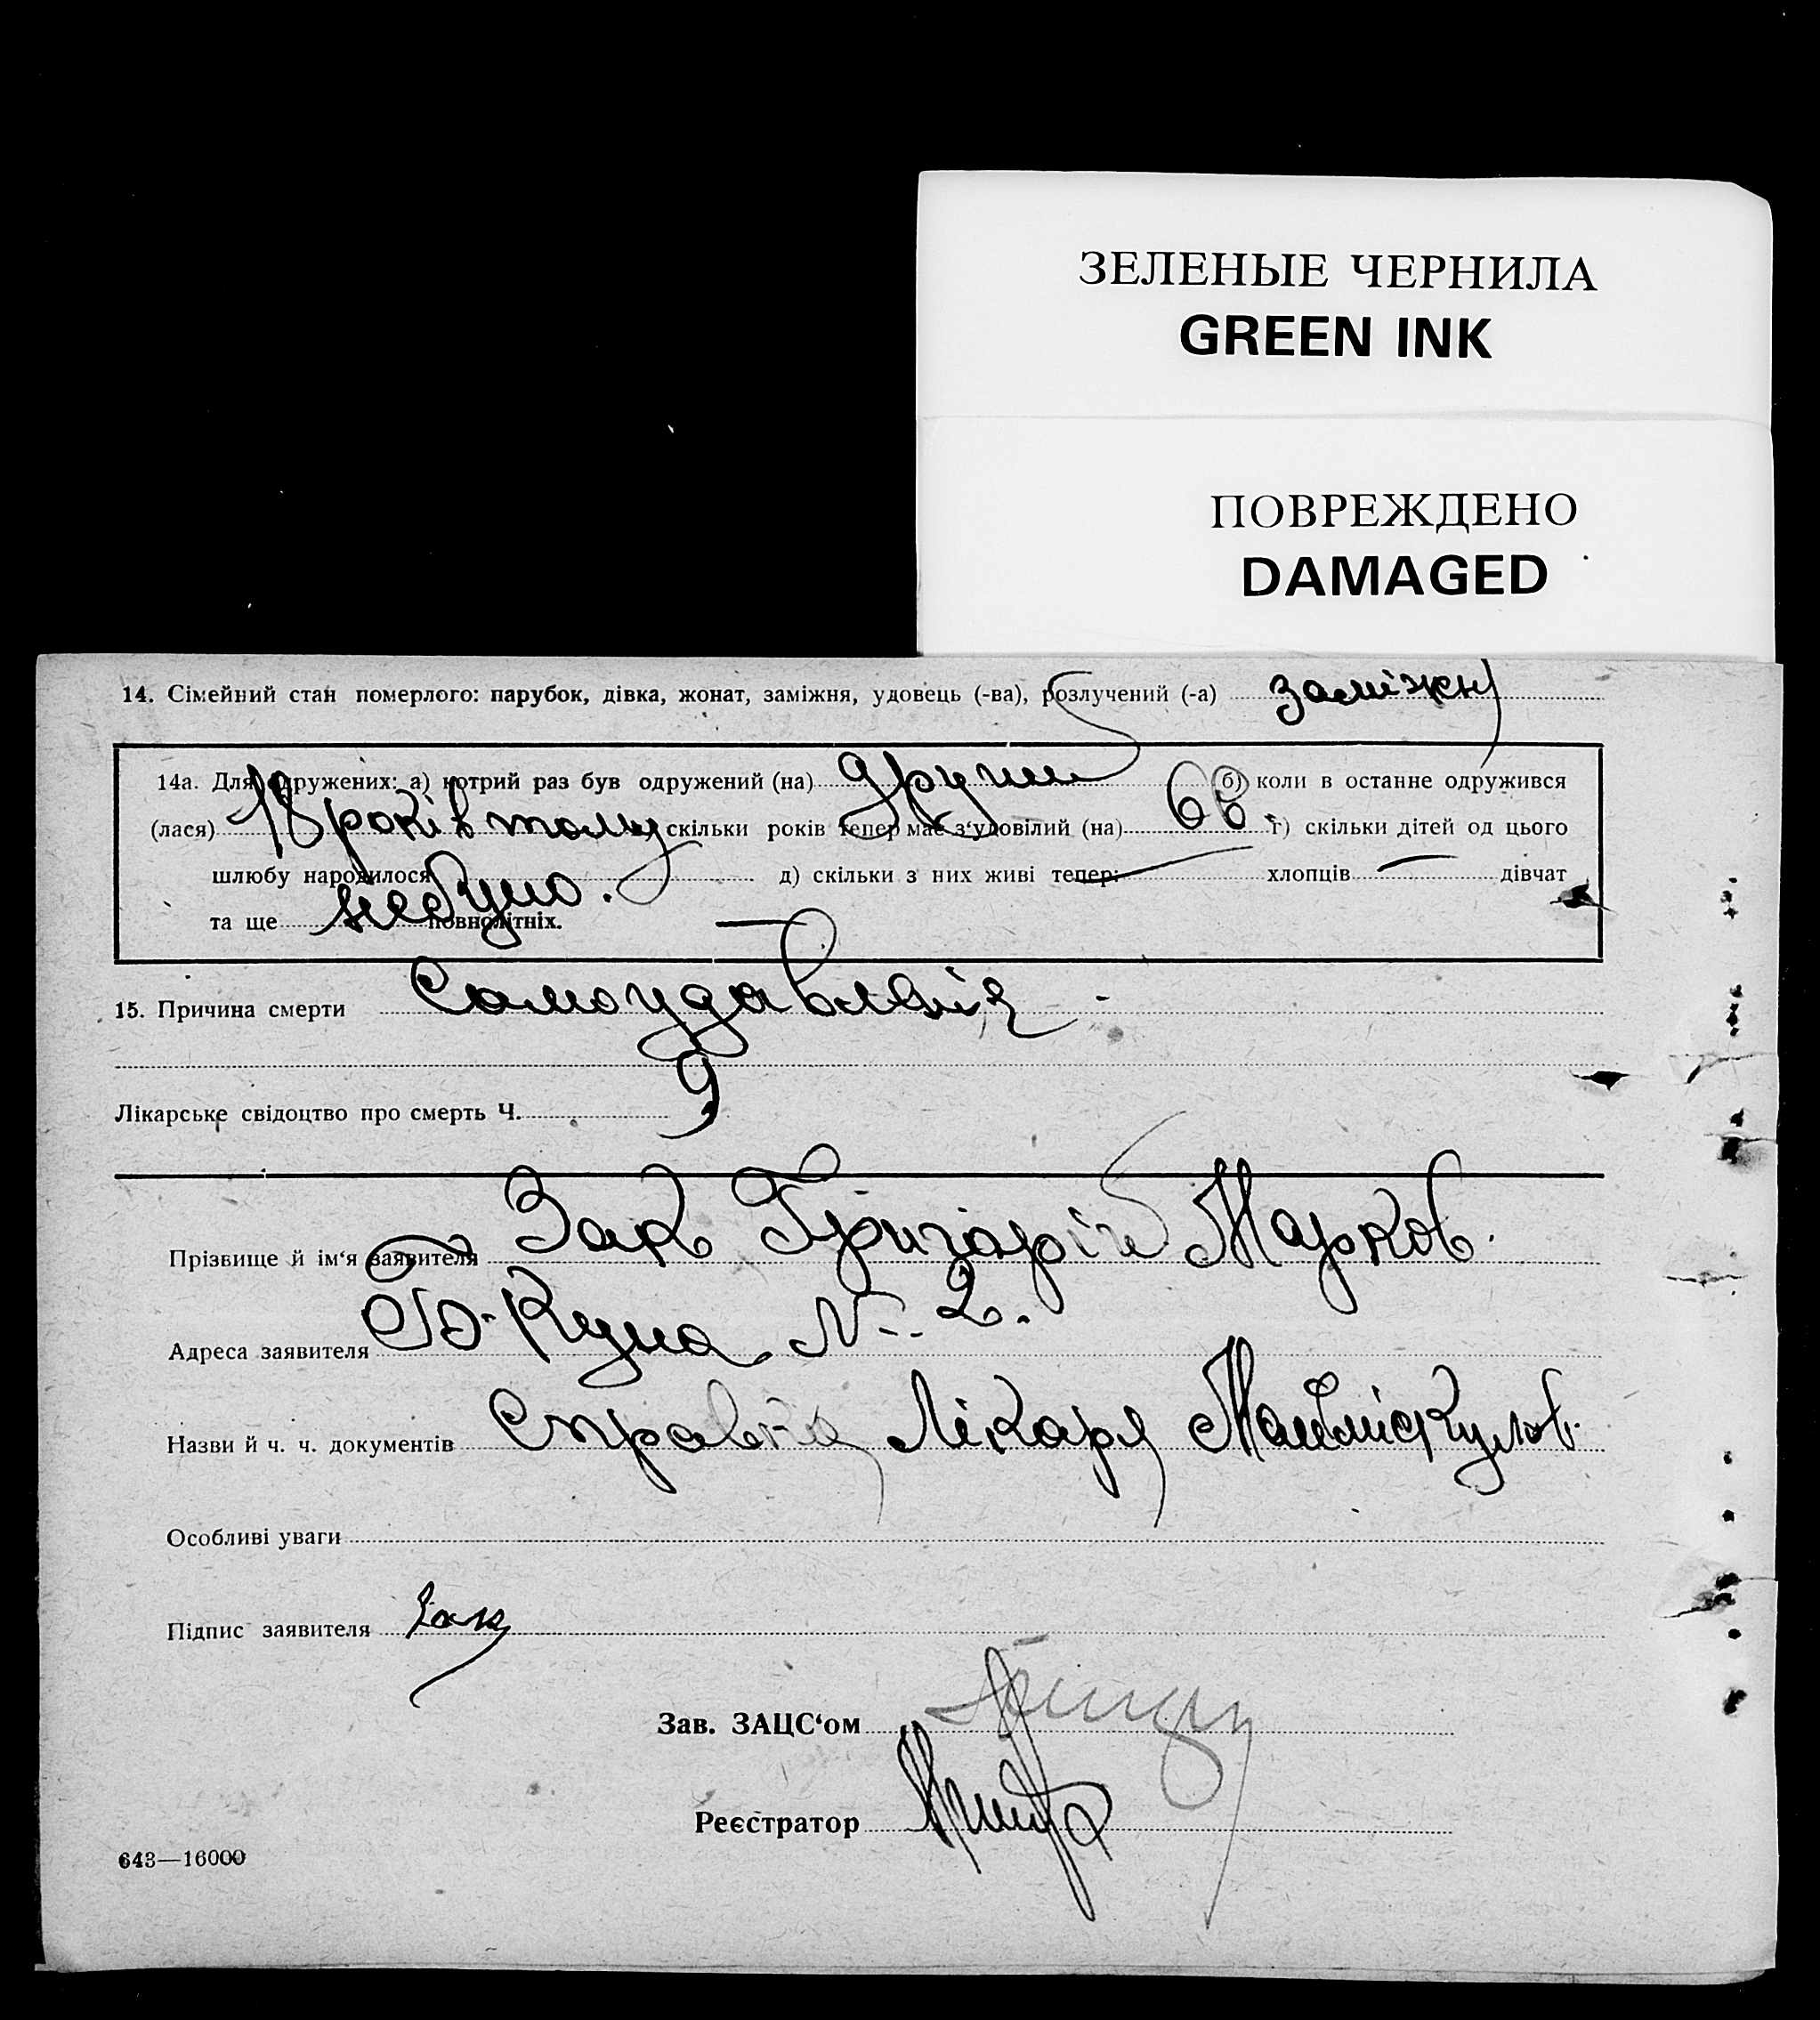 ЗЕЛЕНЫЕ ЧЕРНИЛА
GREEN INK
ПОВРЕЖДЕНО
DAMAGED
14. Сімейний стан померлого: парубок, дівка, жонат, заміжня, удовець (-ва), розлучений (-а) заміжня
14а. Для одружених: а) котрий раз був одружений (на) другий б) коли в останне одружився
(лася) 18 років тому скільки років тепер має з'удовілий (на) 66. г) скільки дітей од цього
шлюбу народилося д) скільки з них живі тепер: — хлопців — дівчат
та ще небуло. повнолітніх. —
15. Причина смерти Самоудавленія
Лікарське свідоцтво про смерть Ч. 9
Прізвище й ім'я заявителя Зак Григорій Марков.
Адреса заявителя № 2.
Назви й ч. ч. документів Справка Лікаря
Особливі уваги
Підпис заявителя Зак
Зав. ЗАЦС'ом
Реєстратор
643—16000